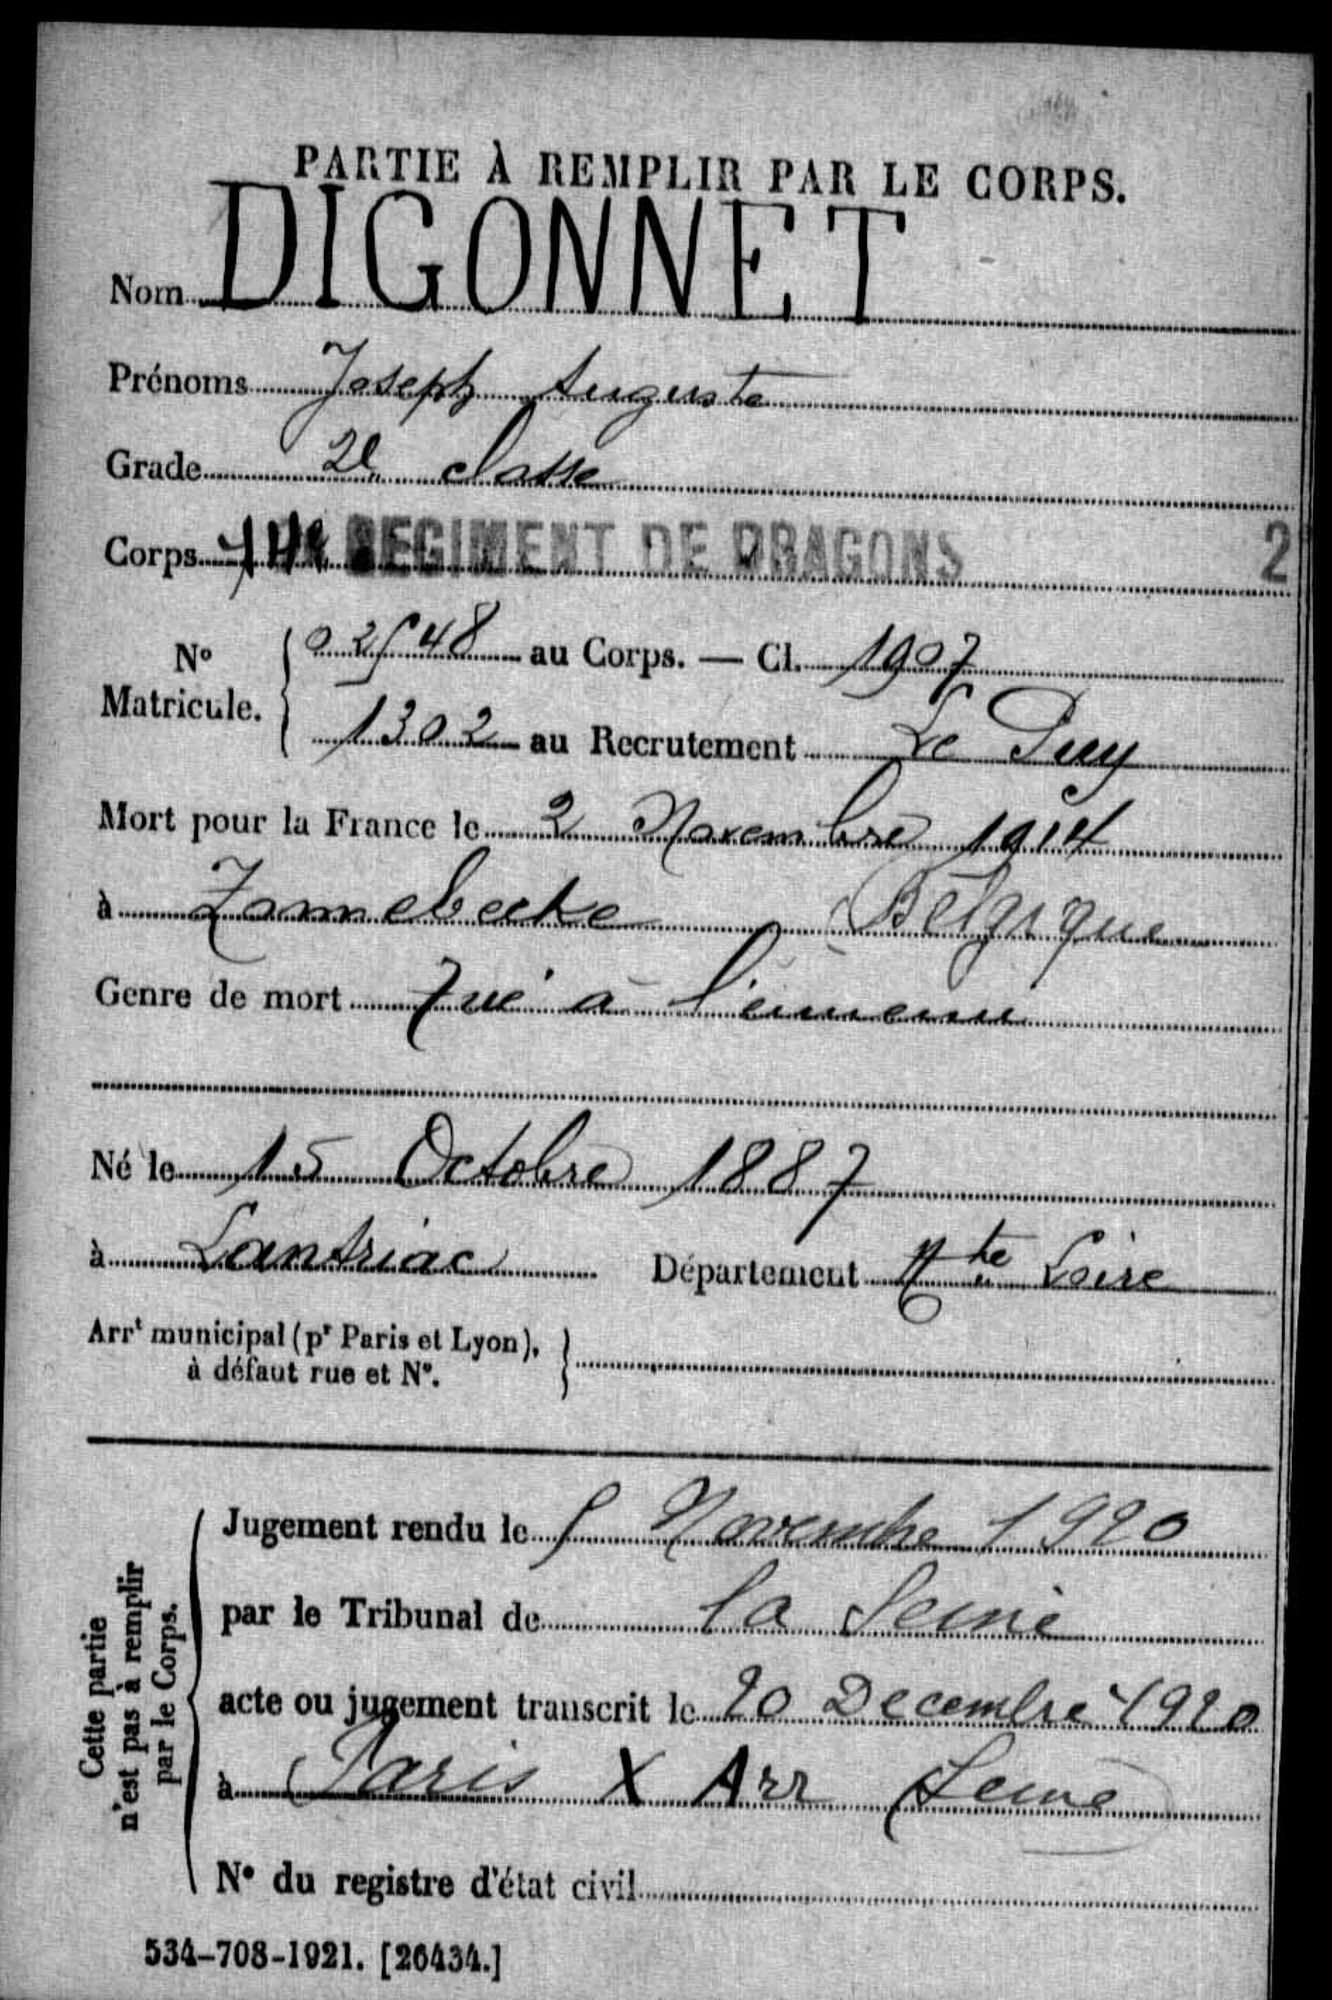 PARTIE À REMPLIR PAR LE CORPS.
Nom DIGONNET
Prénoms Joseph Auguste
Grade 2e classe
Corps REGIMENT DE DRAGONS 2
N° Matricule. 02548 au Corps. — Cl. 1907
1302 au Recrutement Le Puy
Mort pour la France le 2 Novembre 1914
à Zonnebecke (Belgique
Genre de mort Tué à l'ennemi
Né le 15 Octobre 1887
à Lantriac Département Hte Loire
Arrt municipal (pr Paris et Lyon),
à défaut rue et N°.
Cette partie
n'est pas à remplir
par le Corps.
Jugement rendu le 5 Novembre 1920
par le Tribunal de la Seine
acte ou jugement transcrit le 20 Decembre 1920
à Paris X Arr (Seine)
N° du registre d'état civil
534-708-1921. [26434.]